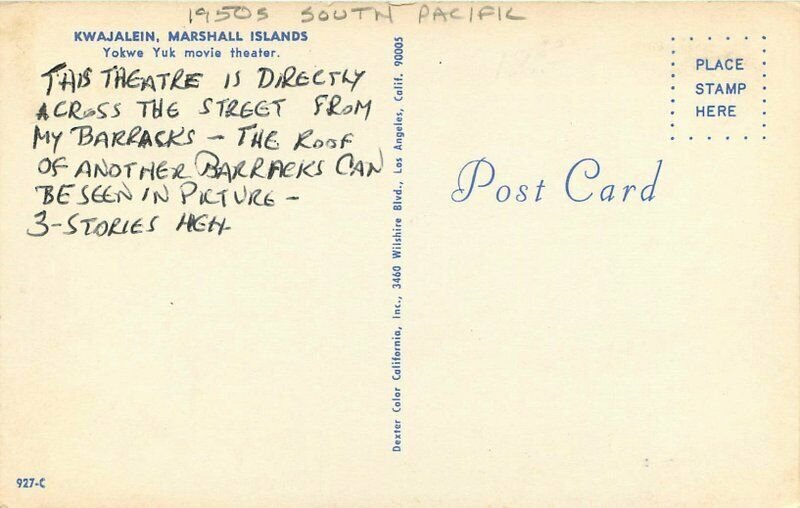 1950S SOUTH PACIFIC
KWAJALEIN, MARSHALL ISLANDS
Yokwe Yuk movie theater.
THIS THEATRE IS DIRECTLY
ACROSS THE STREET FROM
MY BARRACKS - THE ROOF
OF ANOTHER BARRACKS CAN
BE SEEN IN PICTURE -
3-STORIES HIGH
927-C
Dexter Color California, Inc., 3460 Wilshire Blvd., Los Angeles, Calif. 90005
PLACE
STAMP
HERE
Post Card